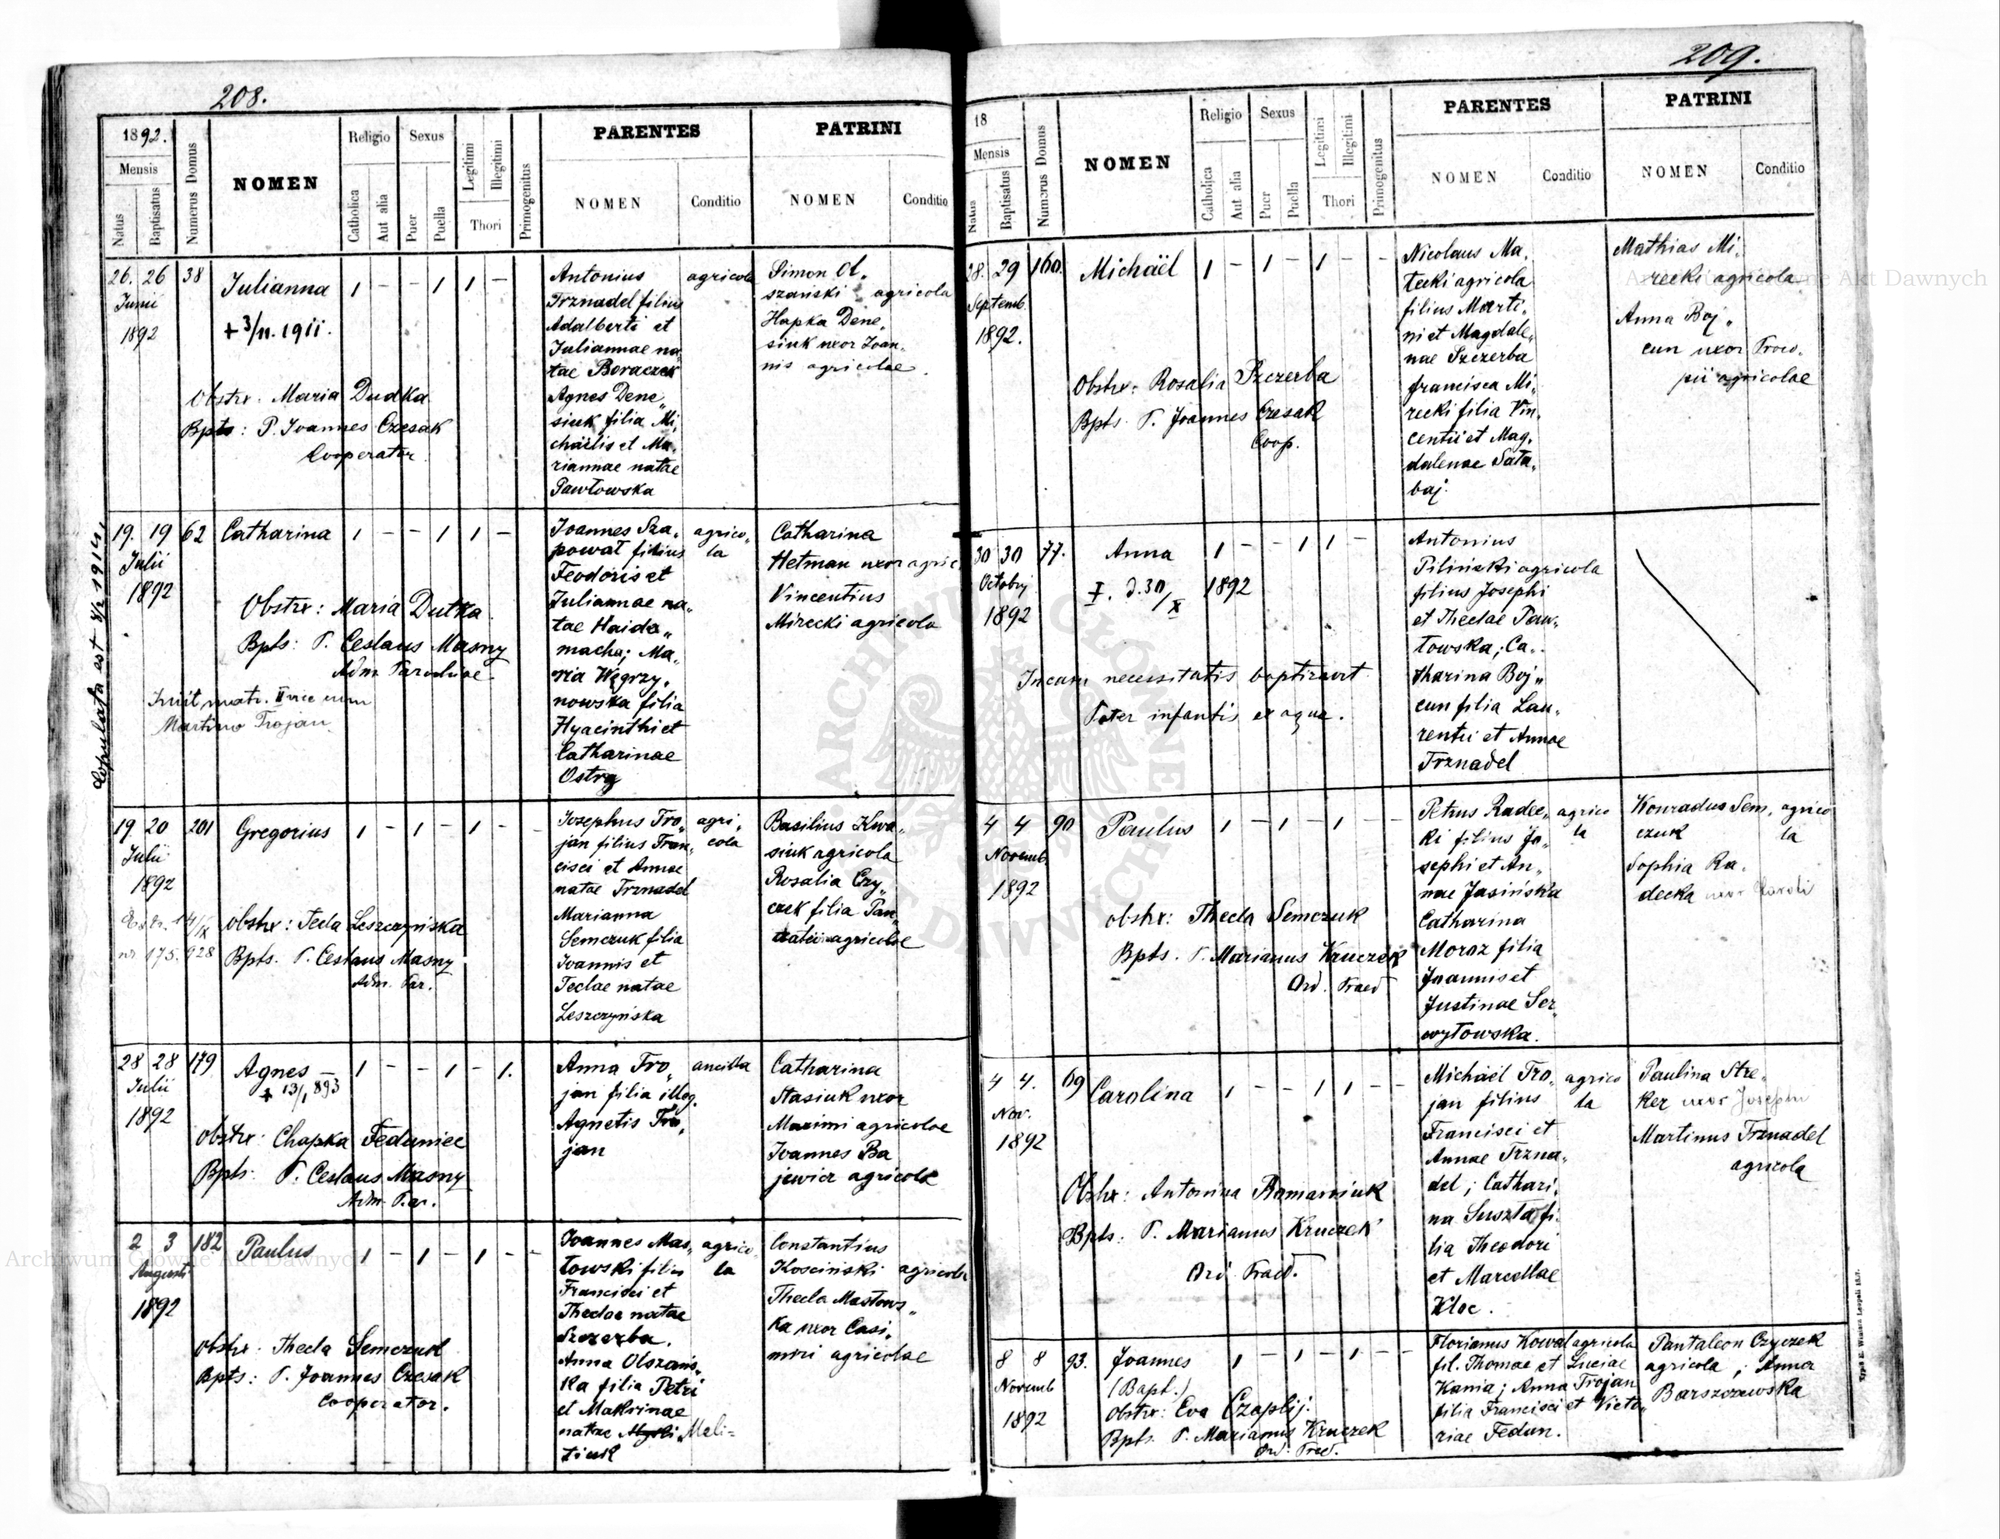 208.
1892.
Mensis
Natus
Baptisatus
Numerus Domus
NOMEN
Religio
Catholica
Aut alia
Sexus
Puer
Puella
Legitimi
Illegitimi
Thori
Primogenitus
PARENTES
NOMEN
Conditio
PATRINI
NOMEN
Conditio
26. 26 38
Junii
1892
Julianna 1 - - 1 1 -
+ 3/11. 1911.
Obstr: Maria Dudka
Bpts: P. Joannes Czesak
Cooperator.
Antonius agricola
Trznadel filius
Adalberti et
Juliannae na
tae Boraczek
Agnes Dene„
siuk filia Mi„
chaëlis et Ma„
riannae natae
Pawłowska
Simon Ol„
szański agricola
Hapka Dene„
siuk uxor Joan„
nis agricolae.
Copulata est 1914
19. 19 62
Julii
1892
Catharina 1 - - 1 1 -
Obstr: Maria Dutka
Bpts: P. Ceslaus Masny
Adm. Parochiae
matr. II vice cum
Martino Trojan.
Joannes Sza„ agrico„
powat filius la
Feodoris et
Juliannae na„
tae Haida„
macha; Ma„
ria Węgrzy„
nowska filia
Hyacinthi et
Catharinae
Ostrą
Catharina
Hetman uxor agric.
Vincentius
Mirecki agricola
19. 20 201
Julii
1892
Gregorius 1 - 1 - 1 - -
14/IX
nr 175.928
Obstr: Tecla Leszczyńska
Bpts. P. Ceslaus Masny
Adm. Par.
Josephus Tro„ agri„
jan filius Fran„ cola
cisci et Annae
natae Trznadel
Marianna
Semczuk filia
Joannis et
Teclae natae
Leszczyńska
Basilius Kwa„
siuk agricola
Rosalia Czy„
czek filia Pan„
agricolae
28 28 179
Julii
1892
Agnes 1 - - 1 - 1.
+ 13/1 893
Obstr: Chapka Feduniec
Bpts: P. Ceslaus Masny
Adm. Par.
Anna Tro„ ancilla
jan filia illeg.
Agnetis Tro„
jan
Catharina
Stasiuk uxor
Maximi agricolae
Joannes Ba
jewicz agricola
2 3 182
Augusti
1892
Paulus 1 - 1 - 1 - -
Obstr: Thecla Semczuk
Bpts: P. Joannes Czesak
Cooperator.
Joannes Mas„ agrico„
towski filius la
Francisci et
Theclae natae
Szczerba.
Anna Olszańs„
ka filia Petri
et Maksinae
natae Meli-
ziuk
Constantius
Kosciński agricola
Thecla Mastows„
ka uxor Casi„
miri agricolae
209.
18
Mensis
Natus
Baptisatus
Numerus Domus
NOMEN
Religio
Catholica
Aut alia
Sexus
Puer
Puella
Legitimi
Illegitimi
Thori
Primogenitus
PARENTES
NOMEN
Conditio
PATRINI
NOMEN
Conditio
28. 29 160.
Septemb.
1892.
Michaël 1 - 1 - 1 - -
Obstr: Rosalia Szczerba
Bpts. P. Joannes Czesak
Coop.
Nicolaus Ma„
tecki agricola
filius Marti„
ni et Magdale„
nae Szczerba
francisca Mi„
recki filia Vin„
centii et Mag„
dalenae Sata„
baj.
Mathias Mi„
recki agricola
Anna Boj„
cun uxor Proco„
pii agricolae
30 30 77.
Octobr
1892
Anna 1 - - 1 1 - -
+. d. 30/X 1892
In casu necessitatis baptizavit
Pater infantis ex aqua.
Antonius
Piliński agricola
filius Josephi
et Theclae Paw„
łowska; Ca„
tharina Boj„
cun filia Lau„
rentii et Annae
Trznadel
4 4 90
Novemb.
1892
Paulus 1 - 1 - 1 - -
Obstr: Thecla Semczuk
Bpts. P. Marianus Kruczek
Ord. Praed
Petrus Radec„ agrico
ki filius Jo„ la
sephi et An„
nae Jasińska
Catharina
Moroz filia
Joannis et
Justinae Ser„
wytowska.
Konradus Sem„ agrico
czuk la
Sophia Ra„
decka uxor Caroli
4 4. 69
Nov.
1892
Carolina 1 - - 1 1 - -
Obstr: Antonina Romaniuk
Bpts: P. Marianus Kruczek
Ord Praed.
Michaël Tro„ agrico
jan filius la
Francisci et
Annae Trzna„
del; Cathari„
na Suszta fi„
lia Theodori
et Marcellae
Kloc.
Paulina Stre„
ker uxor Josephi
Martinus Trznadel
agricola
8 8 93.
Novemb
1892
Joannes 1 - 1 - 1 - -
(Bapt.)
Obstr: Eva Czaplij.
Bpts. P. Marianus Kruczek
Ord. Praed.
Florianus Kowal agricola
fil. Thomae et Luciae
Kania; Anna Trojan
filia Francisci et Victo„
riae Fedun.
Pantaleon Czyczek
agricola; Anna
Barszczewska
Archiwum Główne Akt Dawnych
Archiwum Główne Akt Dawnych
ARCHIWUM GŁÓWNE AKT DAWNYCH